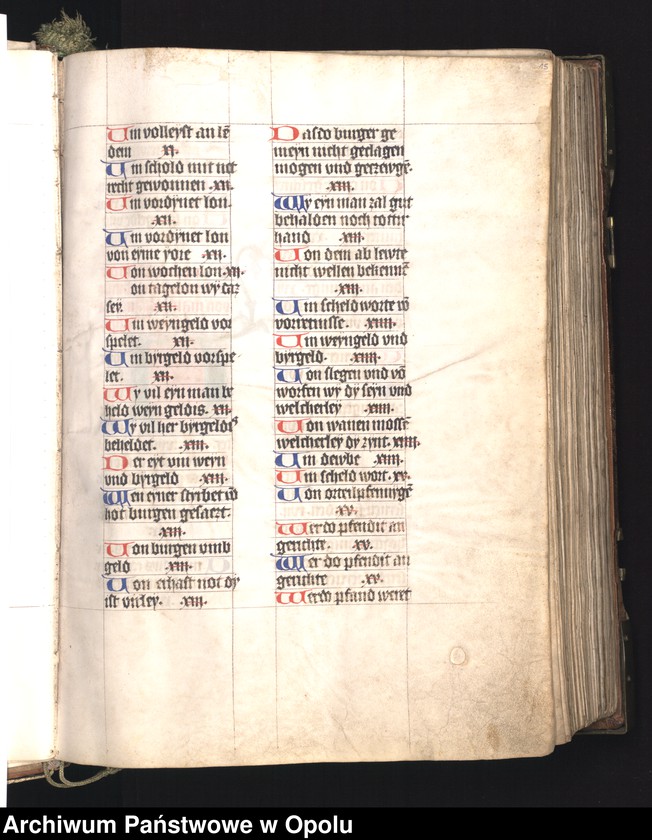 Um volleyst an lē
dem .xi.
Um schold mit ge
recht gewonnen .xii.
Um vordynet lon
.xii.
Um vordynet lon
von eyme yore .xii.
Von wochen lon .xii.
Von tagelon wy daz
sey. .xii.
Um weyngeld vor
spelet. .xii.
Um byrgeld vorspe
let. .xii.
Wy vil eyn man be
held weyn geldis. .xii.
Wy vil her byrgeldꝭ
beheldet. .xiii.
Der eyt vm weyn
vnd byrgeld .xiii.
Wen eyner styrbet d
hot burgen gesaczt.
.xiii.
Von burgen vmb
geld .xiii.
Von erhaft not dy
ist virley. .xiii.
Das do burger ge
meyn nicht geclagen
mogen vnd geczewgē.
.xiii.
Wy eyn man zal gut
behalden noch toter
hand .xiii.
Von dem ab lewte
nicht wellen bekennē
.xiii.
Um scheld worte vō
vorretnisse. .xiiii.
Um weyngeld vnd
byrgeld. .xiiii.
Von slegen vnd vō
worfen wy dy seyn vnd
welcherley .xiiii.
Von wauen mossē
welcherley dy zynt. .xiiii.
Um dewbe .xiiii.
Um scheld wort. .xv.
Von orteil pfennyge
.xv.
Wer do pfendit an
gerichte. .xv.
Wer do pfendit an
gerichte .xv.
Wer do pfand weret
Archiwum Państwowe w Opolu